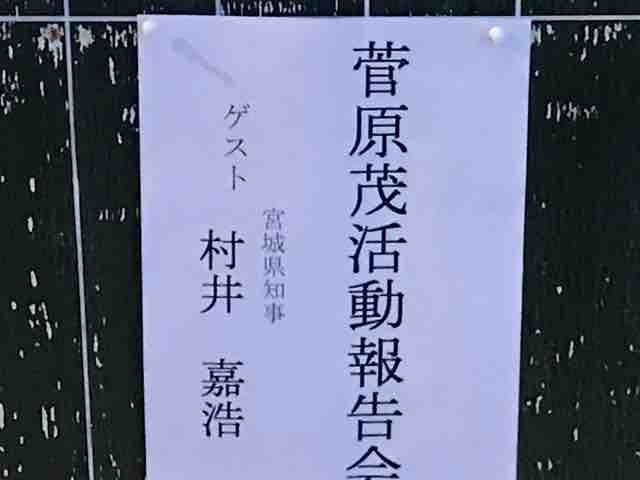 菅原茂活動報告会
宮城県知事
ゲスト 村井 嘉浩